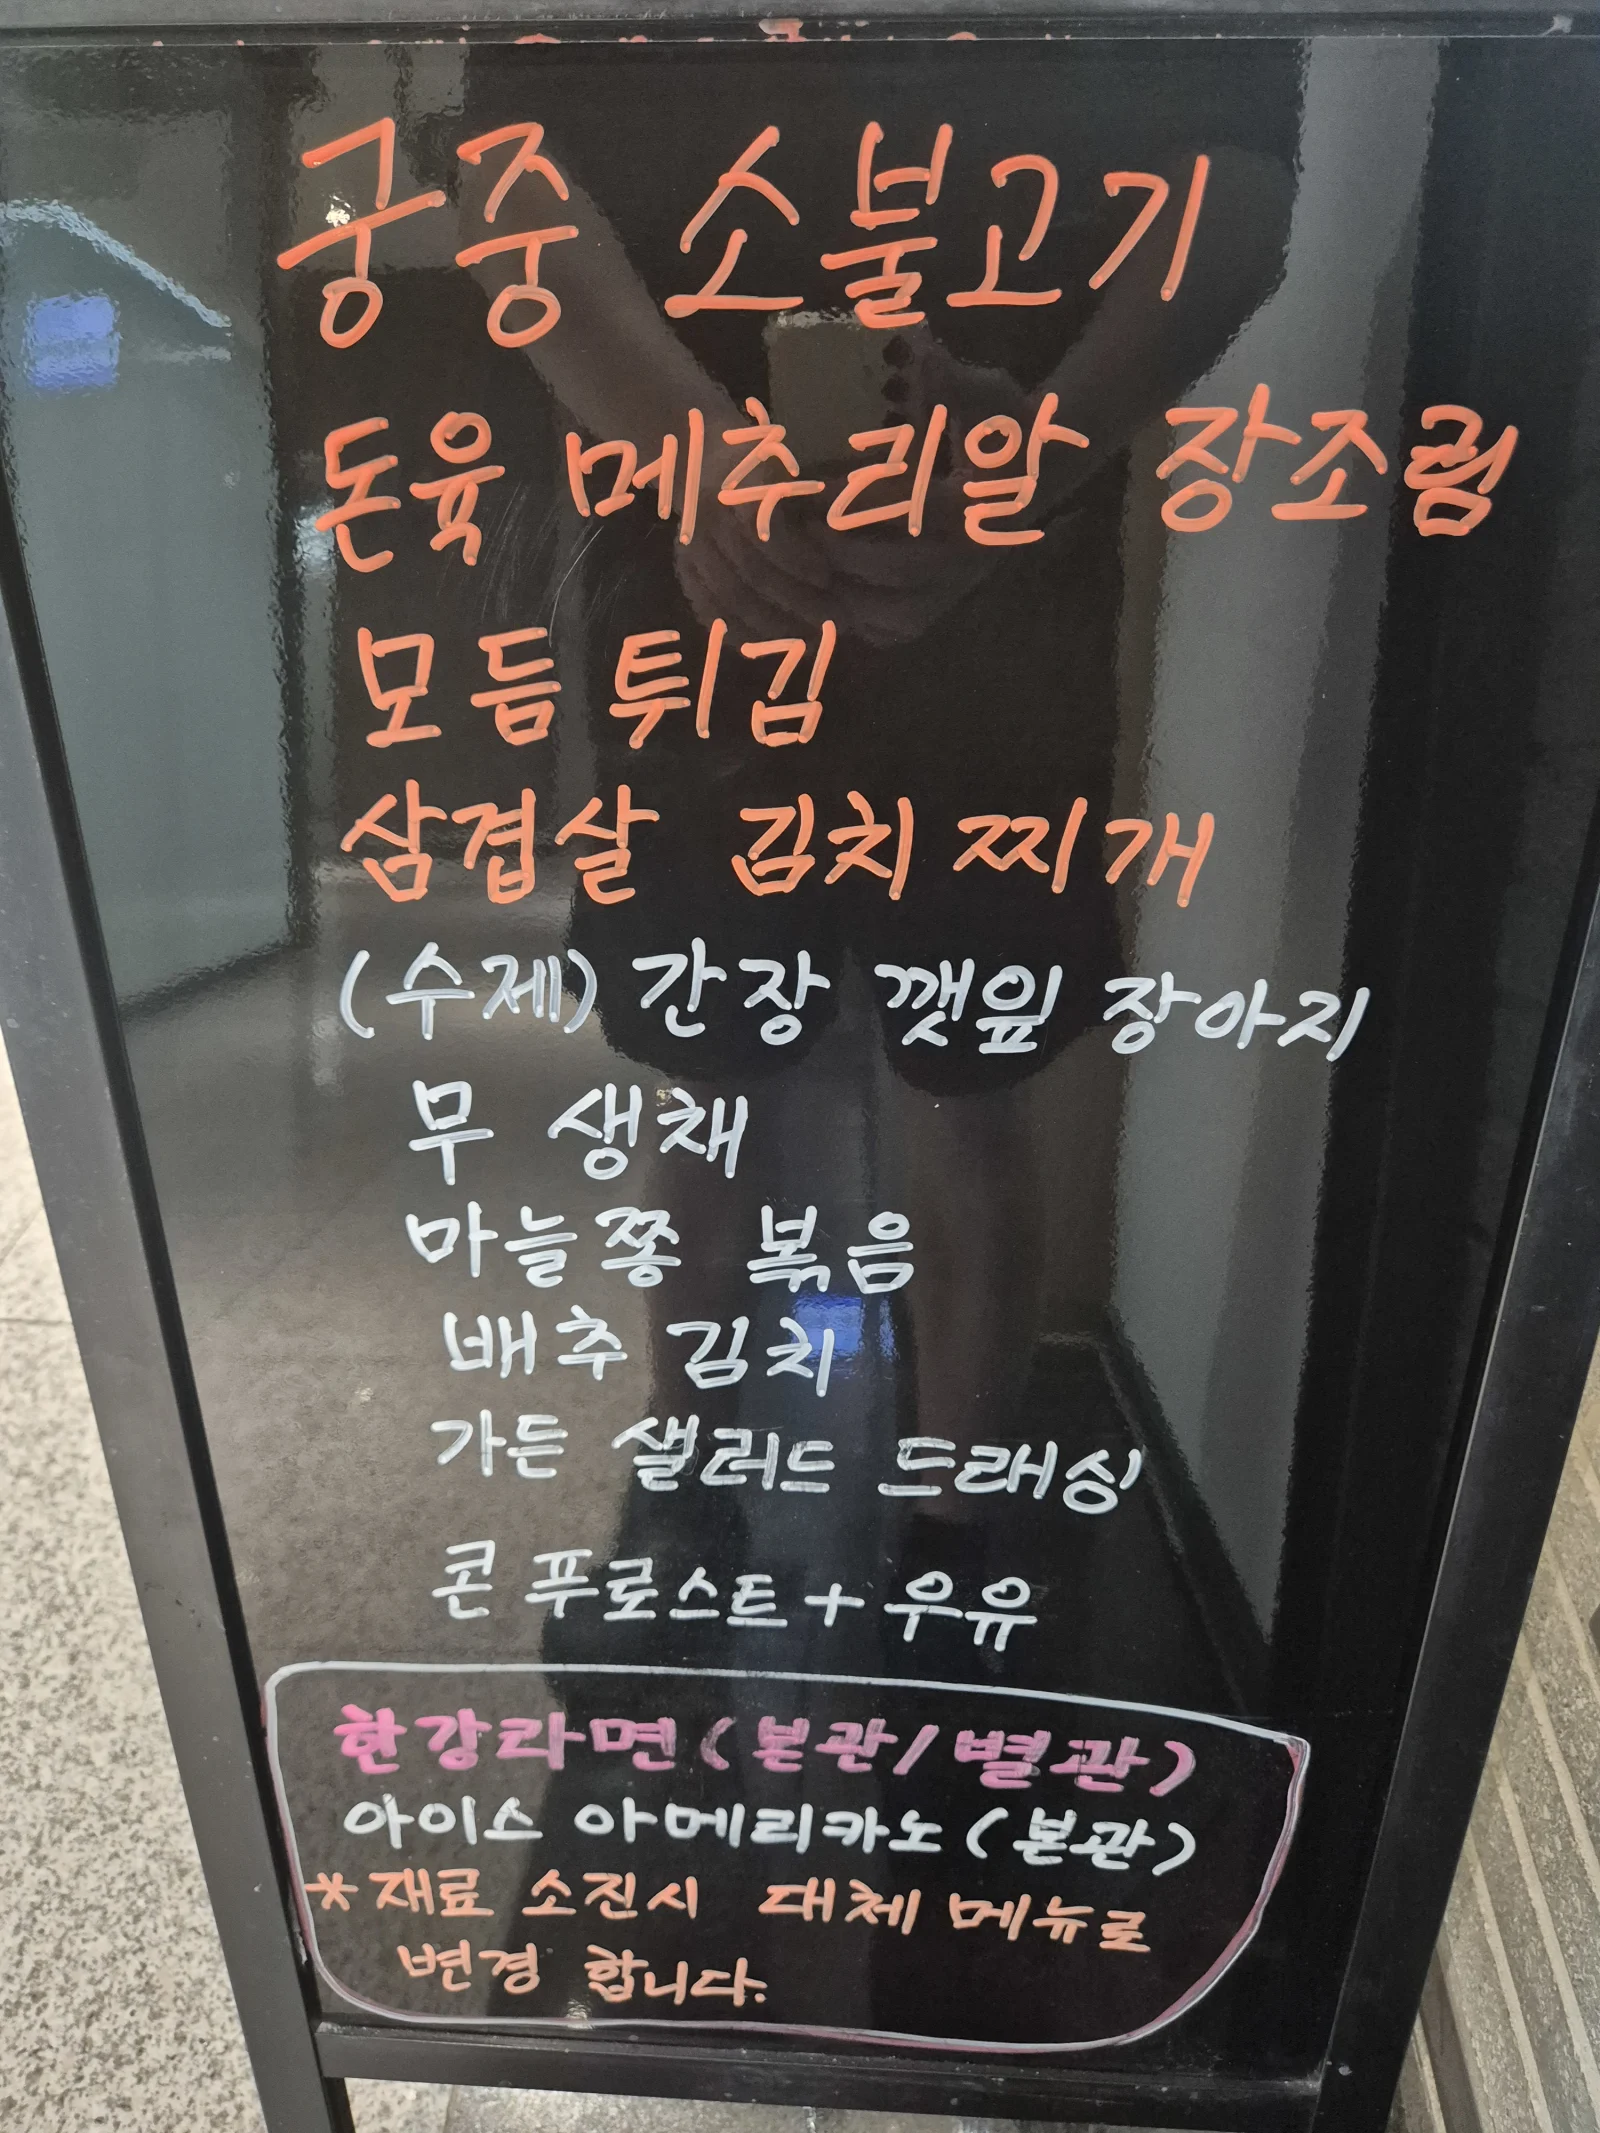 궁중 소불고기
돈육 메추리알 장조림
모듬 튀김
삼겹살 김치 찌개
(수제) 간장 깻잎 장아지
무 생채
마늘쫑 볶음
배추 김치
가든 샐러드 드래싱
콘 푸로스트 + 우유
한강라면 (본관/별관)
아이스 아메리카노 (본관)
* 재료 소진시 대체 메뉴로
변경 합니다.